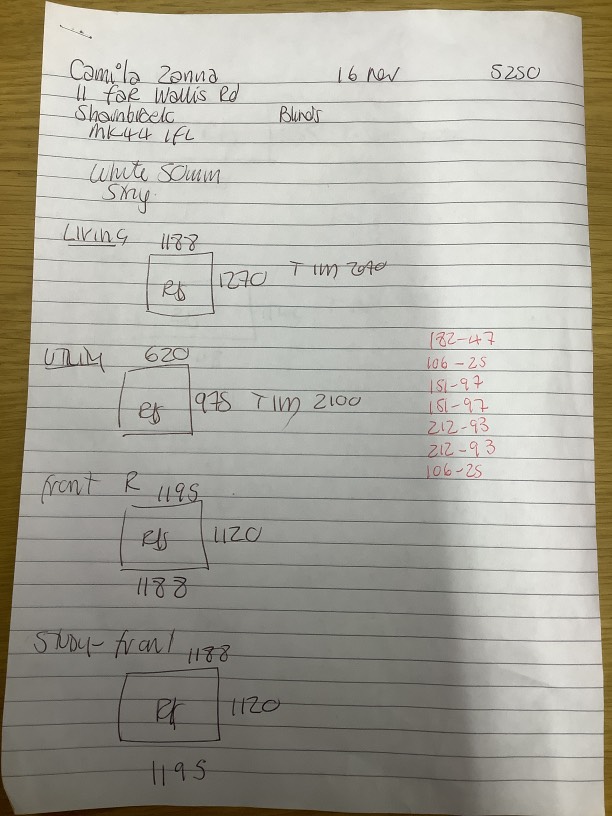 Camila Zanna 16 nov 5250
11 foR Wallis Rd
Sharnbroek Blinds
MK44 1FL
White 50mm
LIVING 1188
RB 1270 TIM 2040
UTILITY 620
RB 975 TIM 2100
front R 1195
RB 1120
1188
STUDY - front 1188
1120
1195
182-47
106-25
151-97
151-97
212-93
212-93
106-25